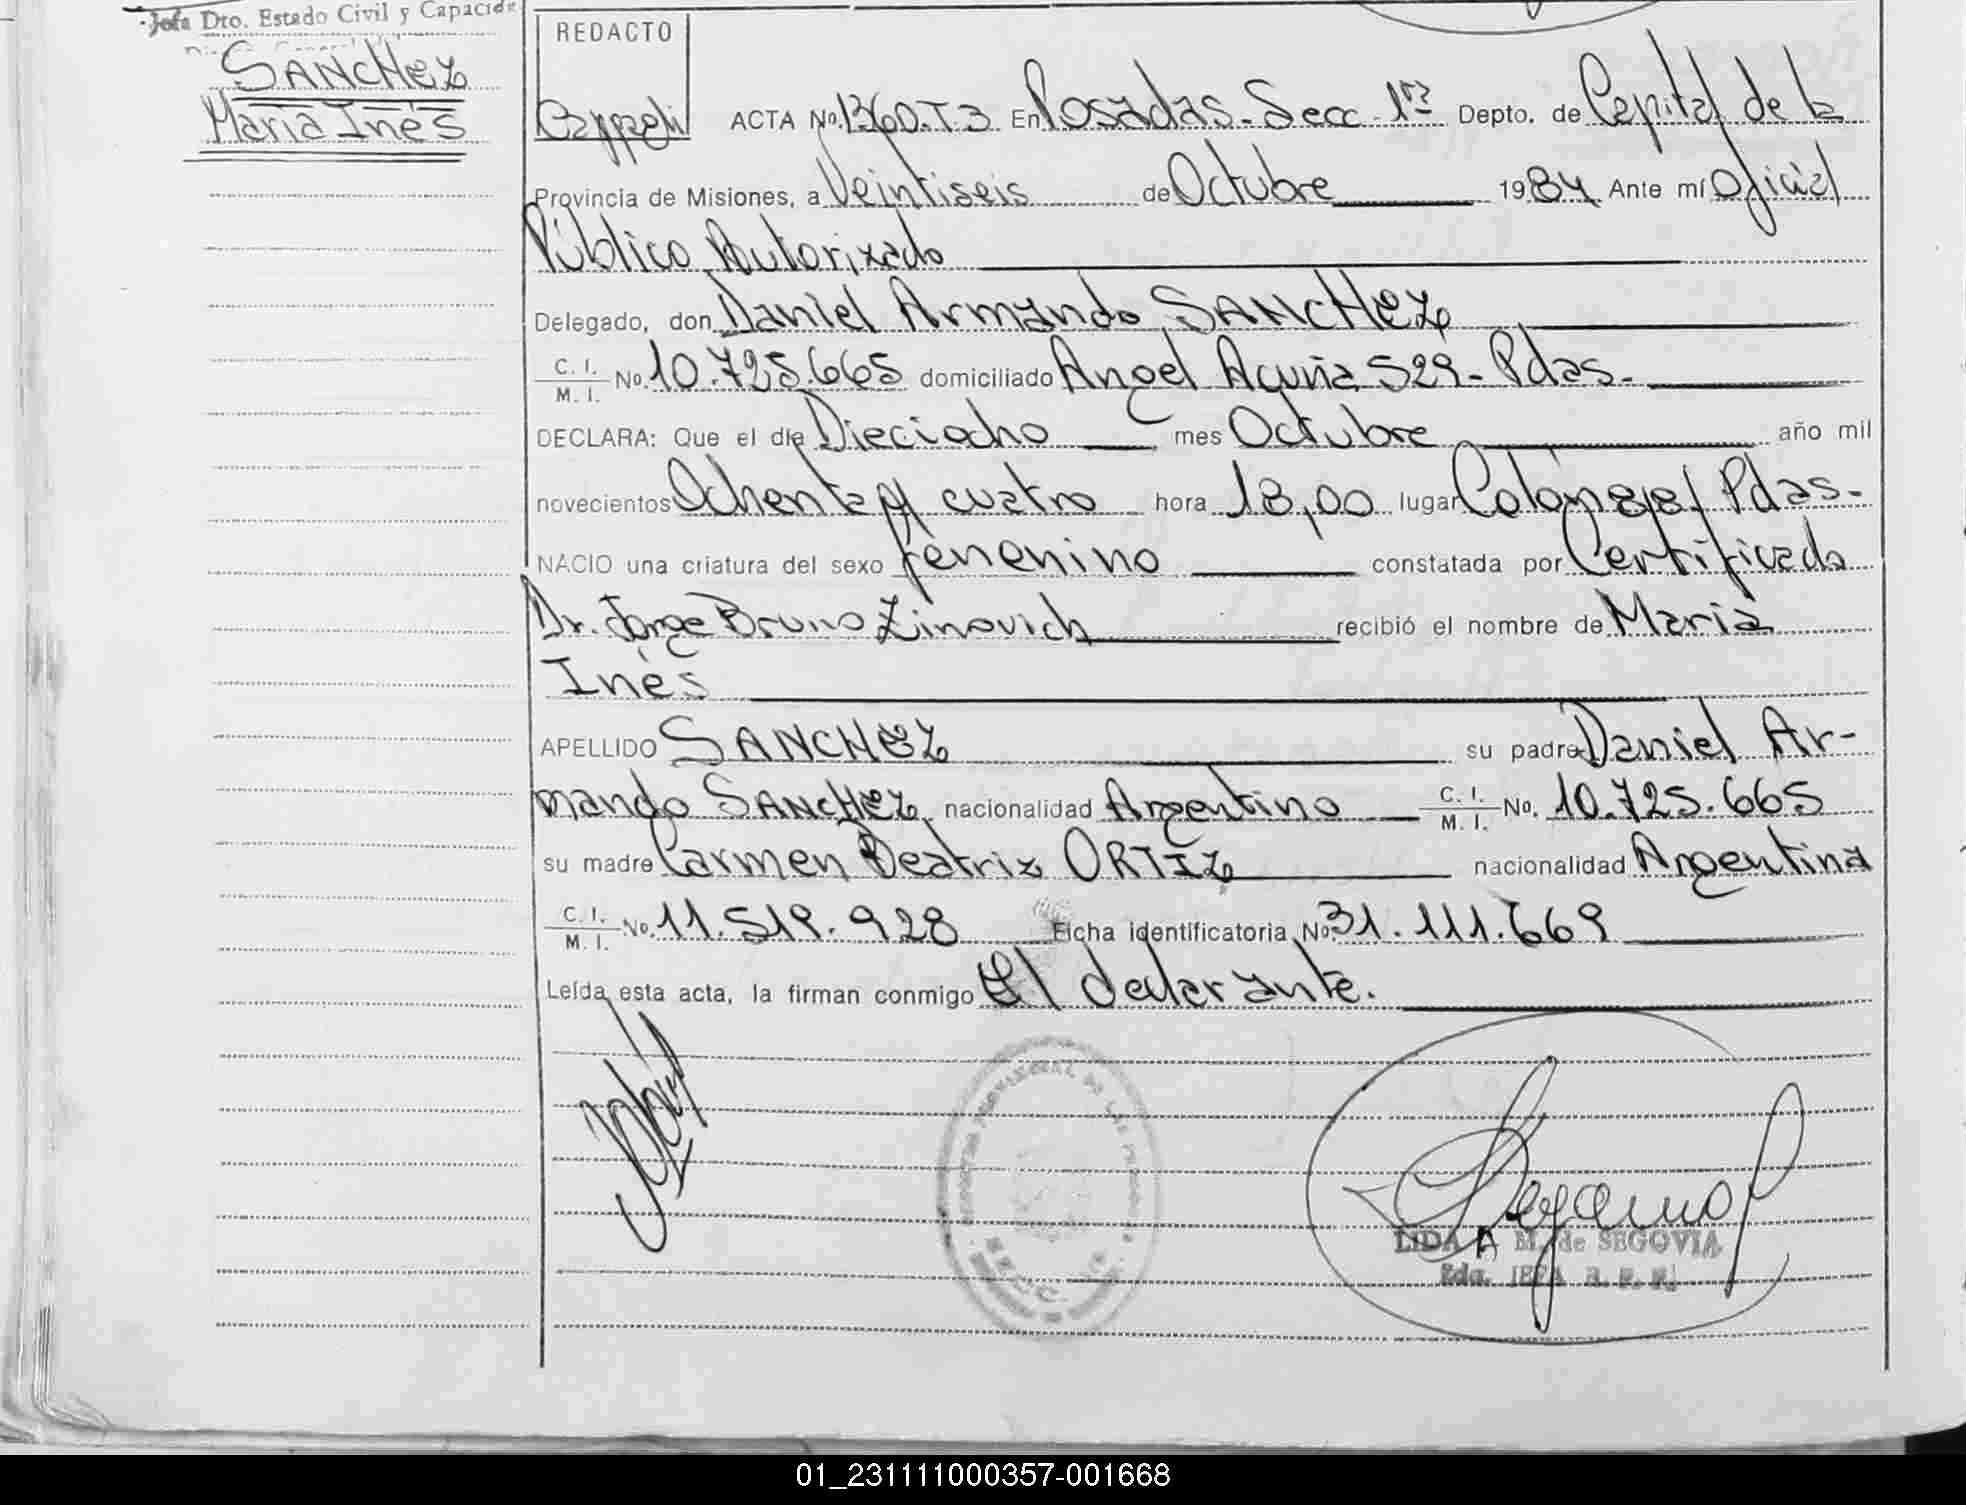 Jefa Dto. Estado Civil y Capacid
SANCHEZ
María Inés
REDACTO
ACTA No. 1360.T.3 En Posadas-Secc-1ra Depto. de Capital de la
Provincia de Misiones, a Veintiseis de Octubre 1984 Ante mí Oficial
Público Autorizado
Delegado, don Daniel Armando SANCHEZ
C. I. M. I. No. 10.725.665 domiciliado Angel Acuña 529-Pdas-
DECLARA: Que el día Dieciocho mes Octubre año mil
novecientos Ochenta y cuatro hora 18,00 lugar Pdas-
NACIO una criatura del sexo femenino constatada por Certificado
Dr. Jorge Bruno Zinovich recibió el nombre de María
Inés
APELLIDO SANCHEZ su padre Daniel Ar-
mando SANCHEZ nacionalidad Argentino C. I. M. I. No. 10.725.665
su madre Carmen Beatriz ORTIZ nacionalidad Argentina
C. I. M. I. No. 11.519.928 Ficha identificatoria No. 31.111.669
Leída esta acta, la firman conmigo El declarante.
LIDA A M. de SEGOVIA
01_231111000357-001668